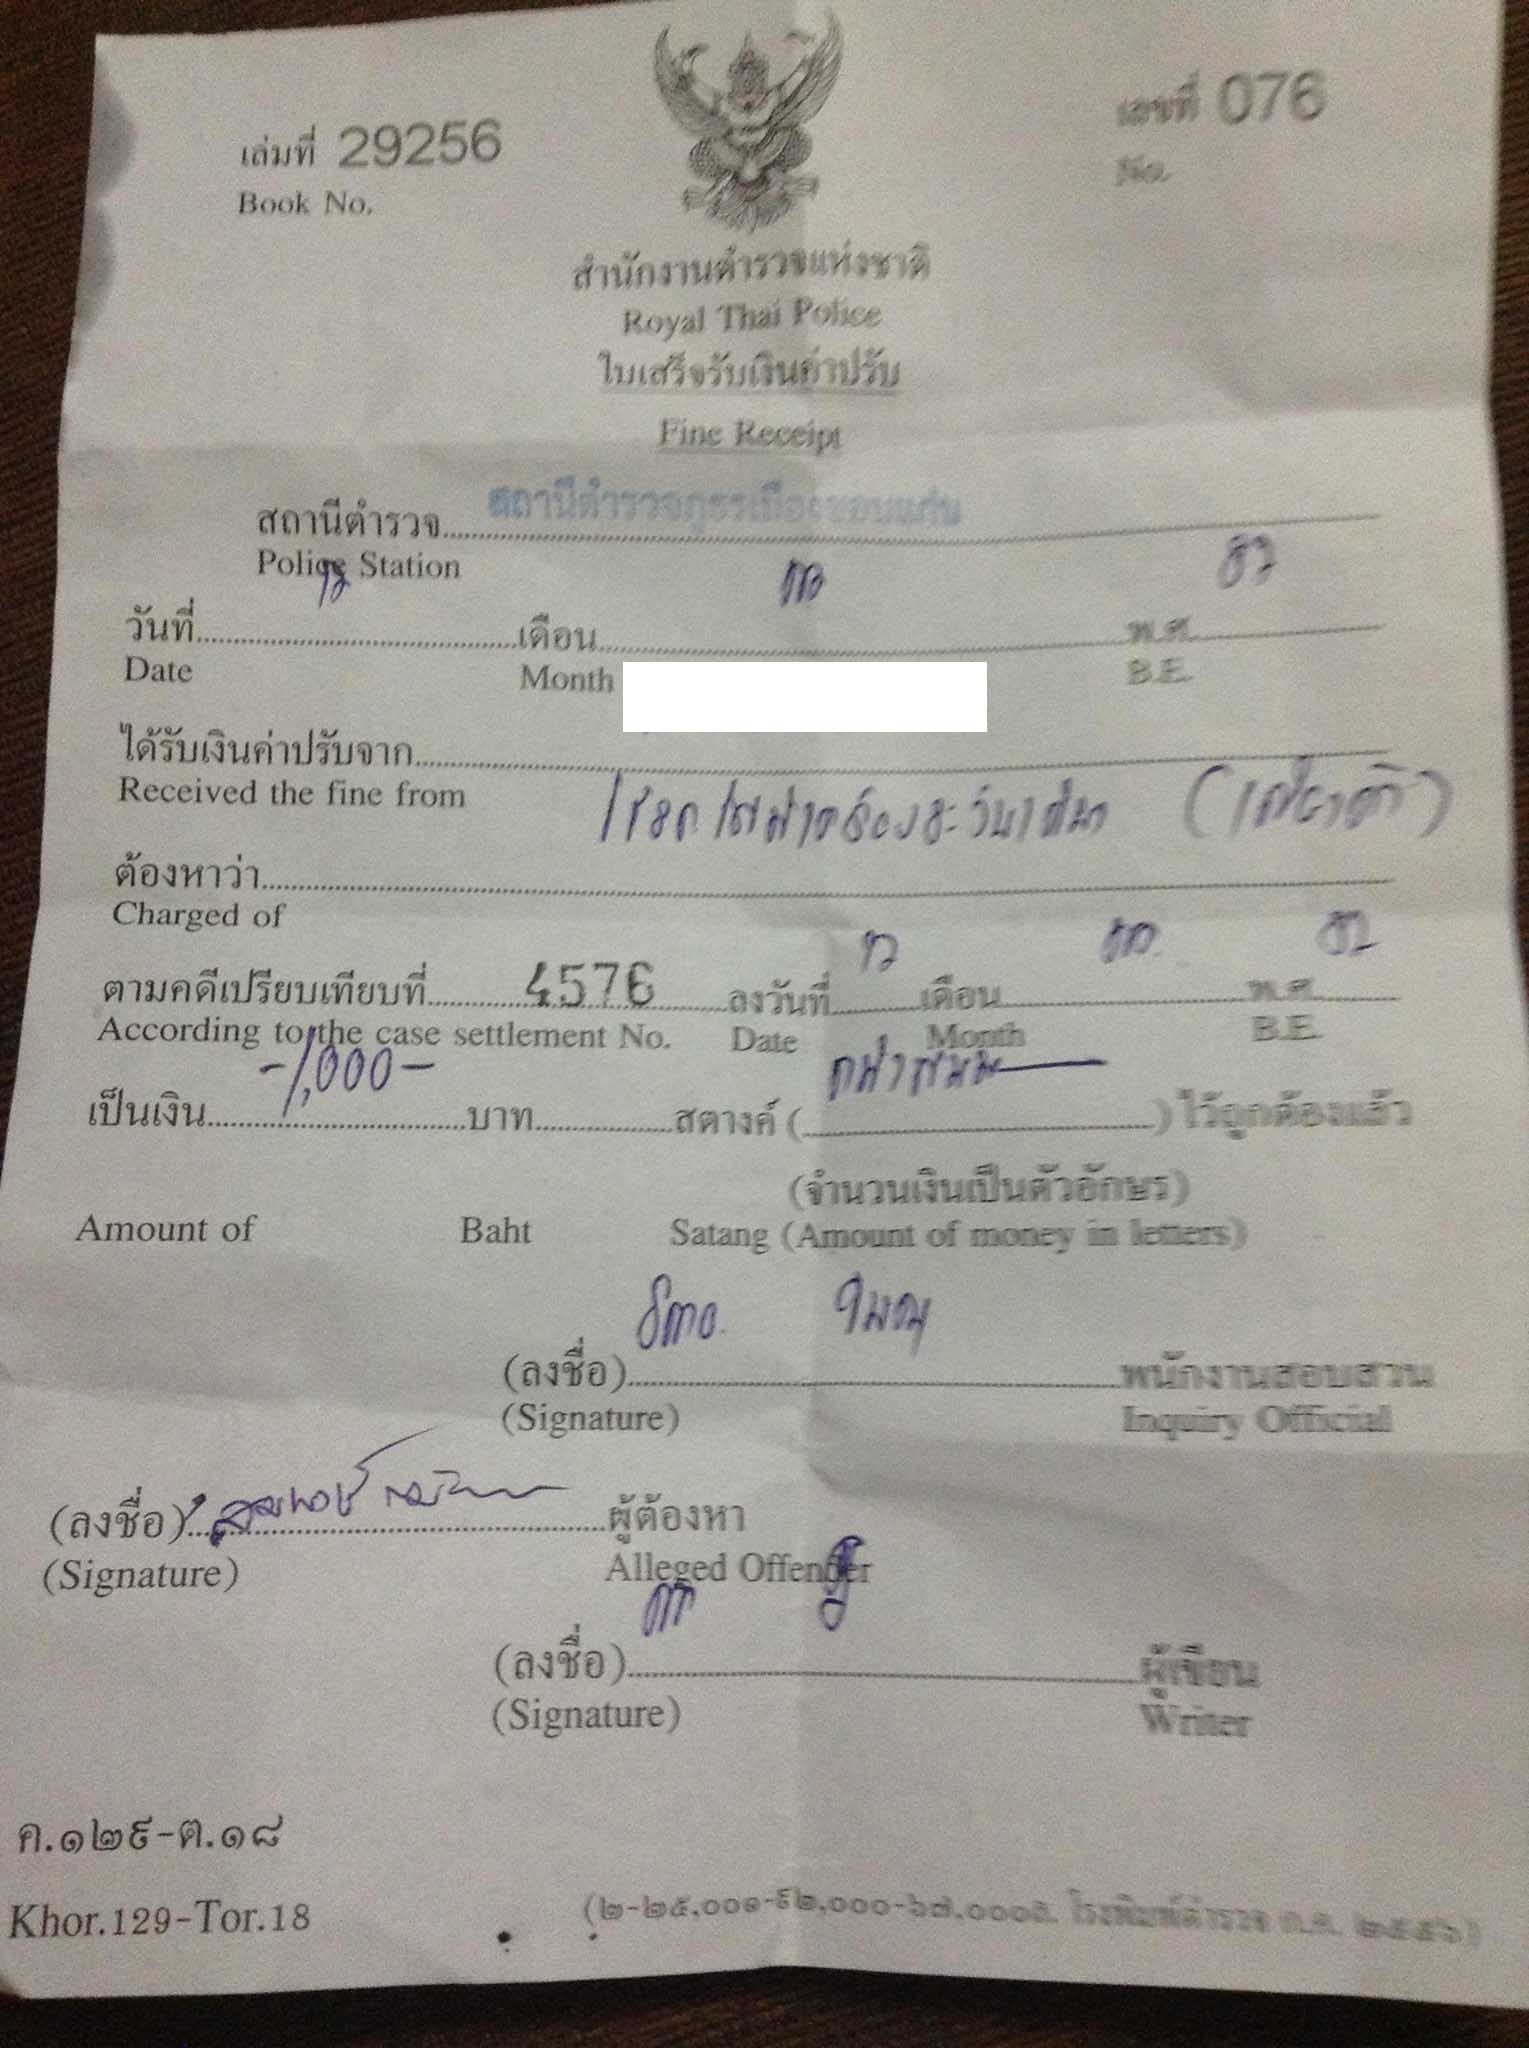 เล่มที่ 29256
Book No.
เลขที่ 076
No.
สำนักงานตำรวจแห่งชาติ
Royal Thai Police
ใบเสร็จรับเงินค่าปรับ
Fine Receipt
สถานีตำรวจ สถานีตำรวจภูธรเมืองขอนแก่น
Police Station
วันที่ เดือน พ.ศ.
Date Month B.E.
ได้รับเงินค่าปรับจาก
Received the fine from
ต้องหาว่า
Charged of
ตามคดีเปรียบเทียบที่ 4576 ลงวันที่ เดือน พ.ศ.
According to the case settlement No. Date Month B.E.
เป็นเงิน -1,000- บาท สตางค์ ( ) ไว้ถูกต้องแล้ว
(จำนวนเงินเป็นตัวอักษร)
Amount of Baht Satang (Amount of money in letters)
(ลงชื่อ) พนักงานสอบสวน
(Signature) Inquiry Official
(ลงชื่อ) ผู้ต้องหา
(Signature) Alleged Offender
(ลงชื่อ) ผู้เขียน
(Signature) Writer
ค.๑๒๙-ต.๑๘
Khor.129-Tor.18